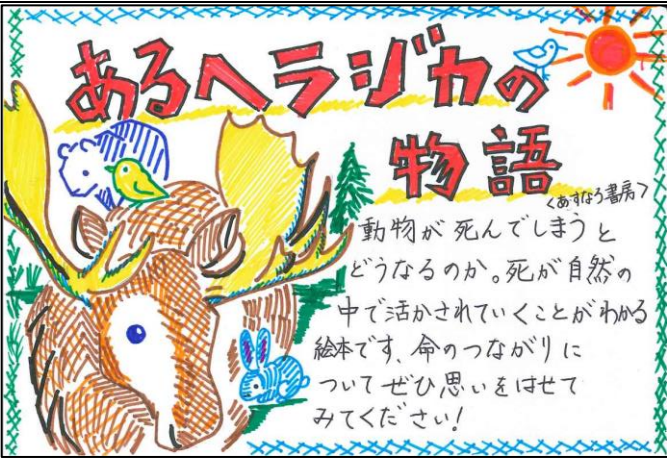 あるヘラジカの
物語
<あすなろ書房>
動物が死んでしまうと
どうなるのか。死が自然の
中で活かされていくことがわかる
絵本です、命のつながりに
ついてぜひ思いをはせて
みてください!